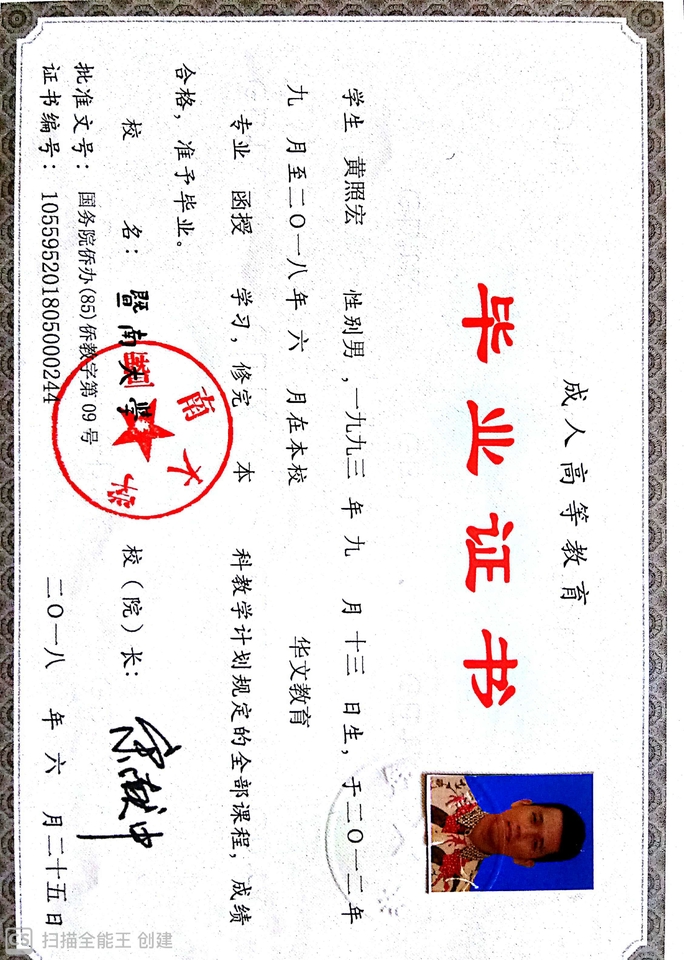 成人高等教育
毕业证书
学生 黄照宏 性别男，一九九三 年 九 月 十三 日生，于二〇一二年
九 月至二〇一八年 六 月在本校 华文教育
专业 函授 学习，修完 本 科教学计划规定的全部课程，成绩
合格，准予毕业。
校 名：暨南大学 校（院）长：
批准文号：国务院侨办(85)侨教字第 09 号
证书编号：105595201805000244 二〇一八 年 六 月二十五日
CS 扫描全能王 创建